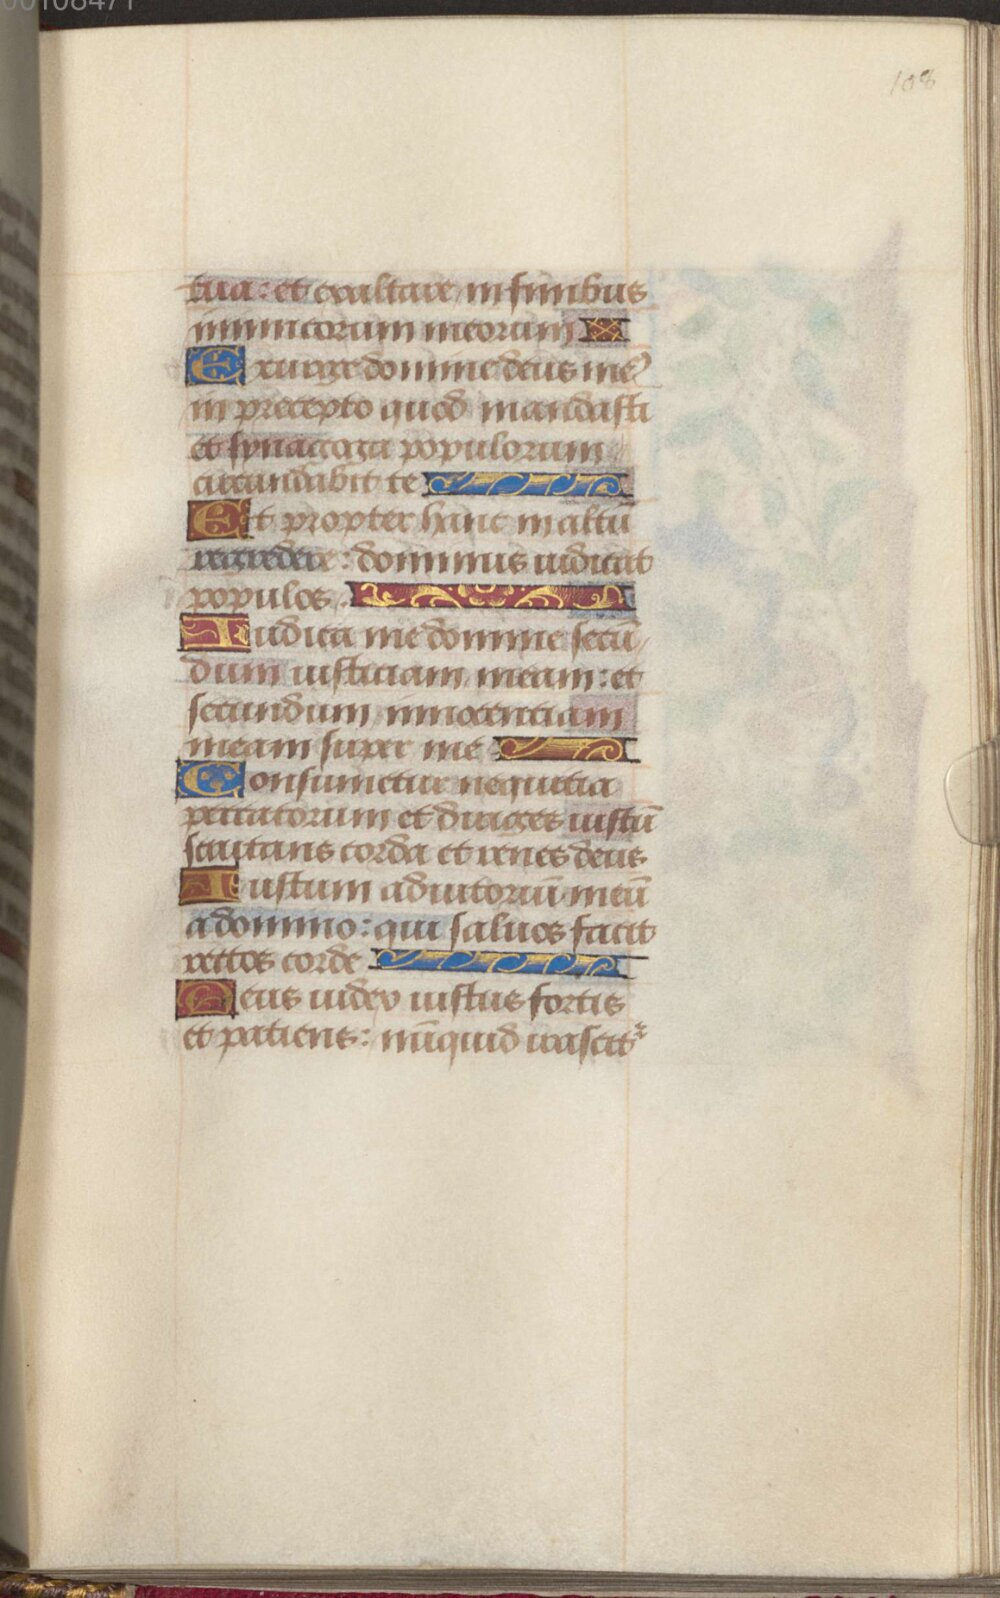 00108471
108
tua: et exaltare in finibus
inimicorum meorum
Exurge domine deus me9
in precepto quod mandasti
et synagoga populorum
circundabit te
Et propter hanc in altū
regredere: dominus iudicat
populos.
Iudica me domine secū
dum iusticiam meam: et
secundum innocenciam
meam super me
Consumetur nequitia
peccatorum et diriges iustū
scrutans corda et renes deus
Iustum adiutoriū meū
a domino: qui saluos facit
rectos corde
Deus iudex iustus fortis
et patiens: nūquid irascit᷑